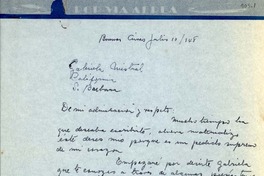 POR VIA AEREA
Buenos Aires Julio 10/948
Gabriela Mistral
California
S. Bárbara
De mi admiración y respeto.
Mucho tiempo hace
que deseaba escribirte, ahora materializo
este deseo mio porque es un pedido supremo
de mi corazon.
Empezaré por decirte Gabriela
que te conozco a través de algunas